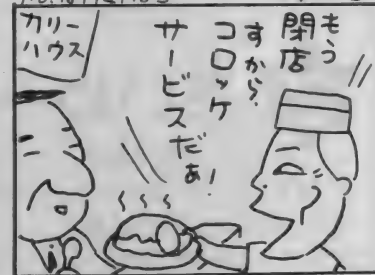 カリー
ハウス
もう
閉店
すから
コロッケ
サービスだぁ!